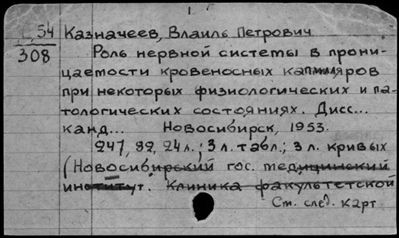 54 Казначеев, Влаиль Петрович
308 Роль нервной системы в прони-
цаемости кровеносных капилляров
при некоторых физиологических и па-
тологических состояниях. Дисс...
канд... Новосибирск, 1953.
247, 82, 24 л.; 3 л. табл.; 3 л. кривых
(Новосибирский гос. медицинский
институт. Клиника факультетской
См. след. карт